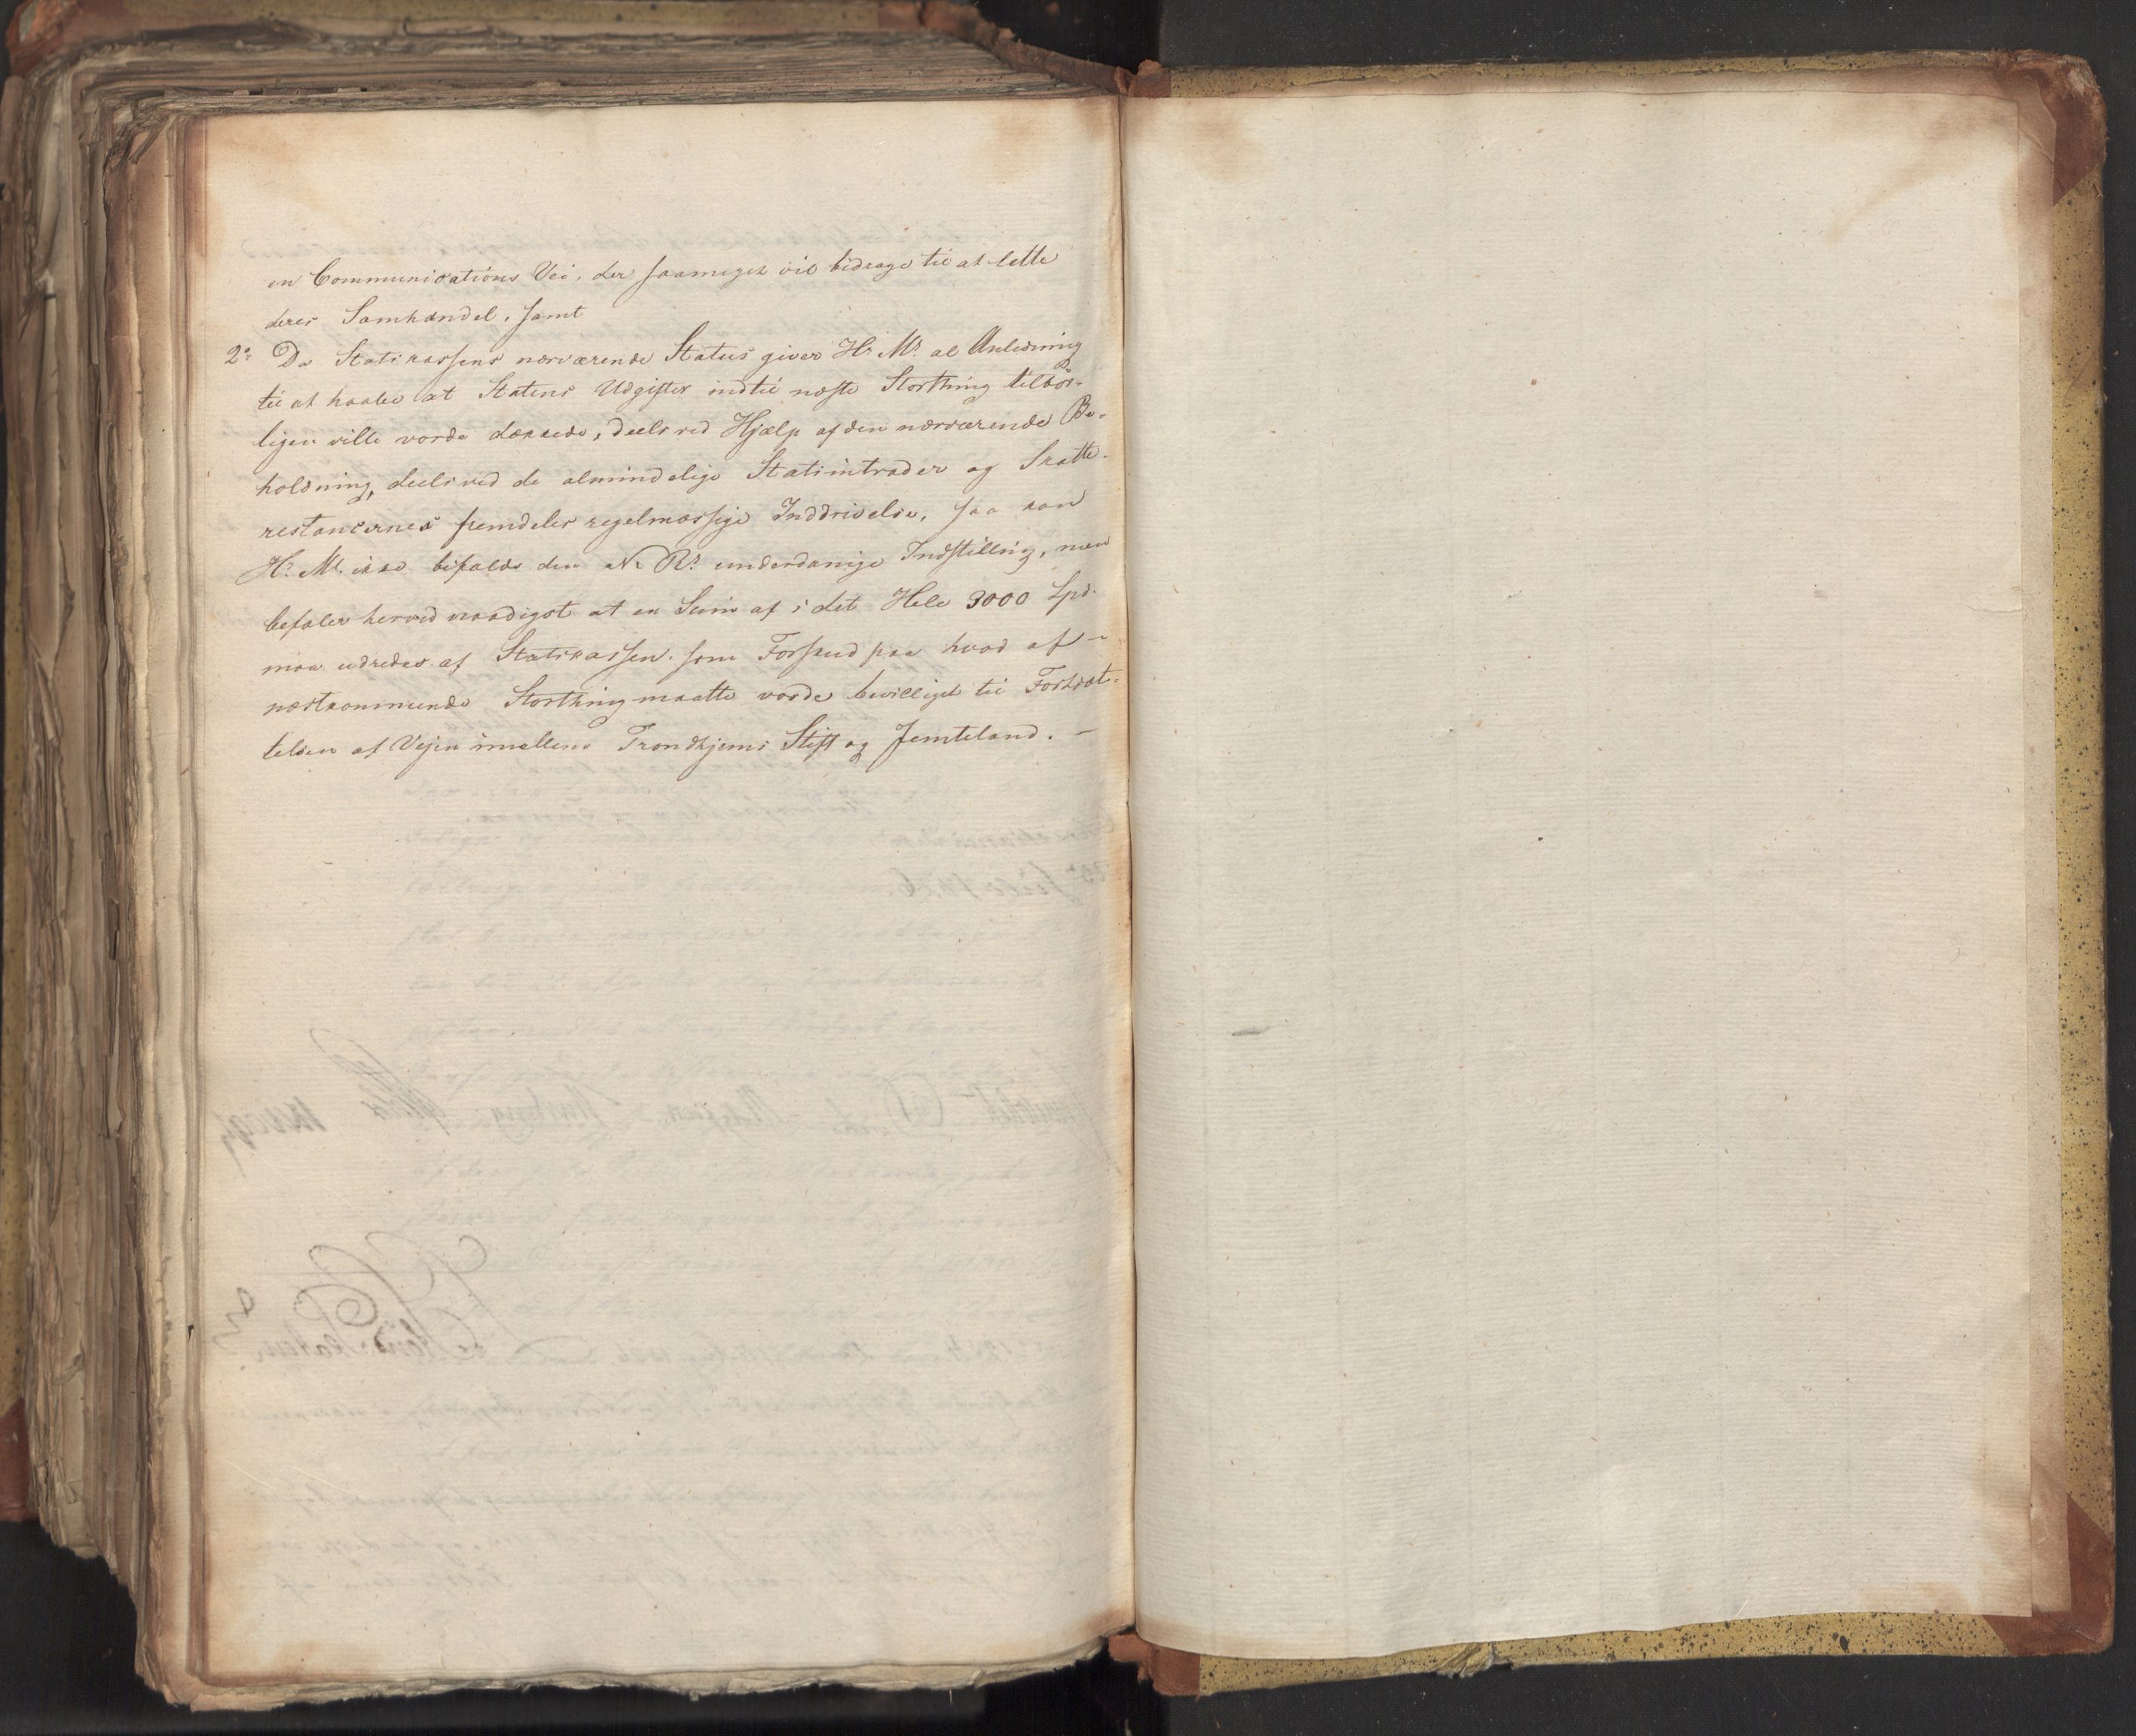 en Communications Vei, der saameget vil bidrage til at lette
deres Samhandel, samt
2o: Da Statskassens nærværende Status giver H: M: al Anledning
til at haabe at Statens Udgifter indtil næste Storthing tilbör-
ligen ville vorde dækkede, deels ved Hjælp af den nærværende Be-
holdning, deels ved de almindelige Statsintrader og Skatte-
restancernes fremdeles regelmæssige Inddrivelse, saa kan
H: M: ikke bifalde den N: R: underdanige Indstilling, men
befaler herved naadigst at en Sum af i det Hele 3000 Spd.
maa udredes af Statskassen som Forskud paa hvad af -
næstkommende Storthing maatte vorde bevilliget til Fortsæt-
telsen af Vejen imellem Trondhjems Stift og Jemteland. -